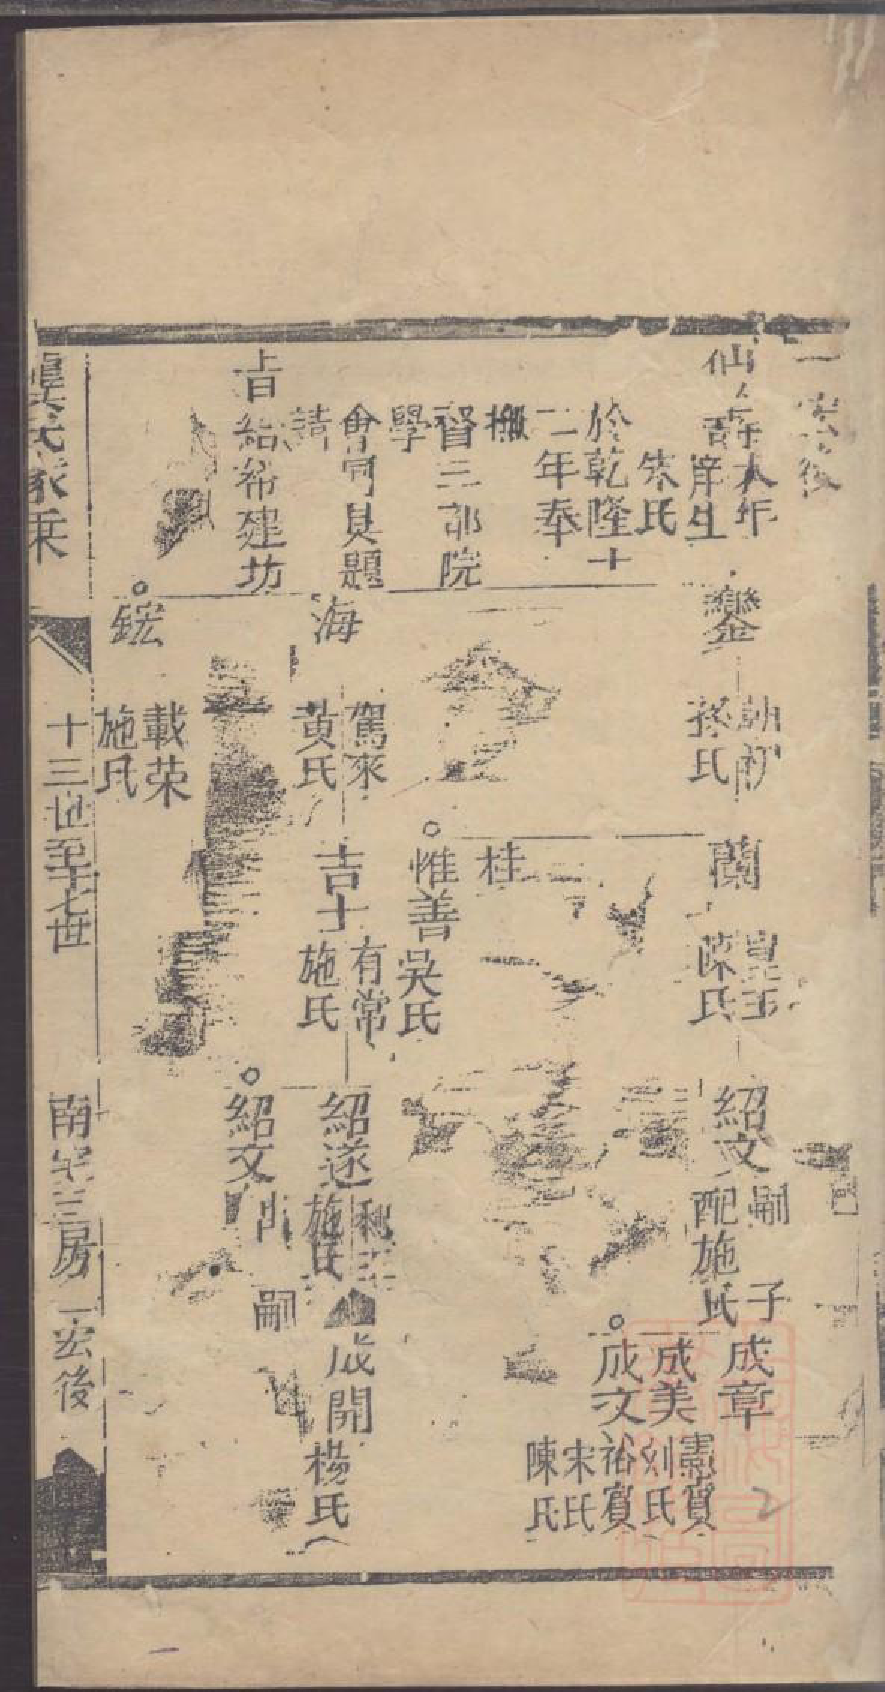 一宏後
仙壽
大年
庠生
朱氏
於乾隆十
二年奉
撫
督三部院
學
會同具題
請
旨給帑建坊
鑾
朝初
孫氏
海
駕來
黃氏
鋐
載荣
施氏
蘭
陳氏
桂
惟善
吳氏
吉士
有常
施氏
紹文
嗣
配施氏
子
紹遂
施氏
紹文
嗣
成章
成美
憲賓
刘氏
成文
裕賓
宋氏
陳氏
成開
楊氏
龔氏家乘
十三世至十七世
南宅三房一宏後
2